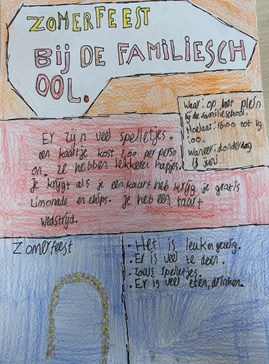 ZOMERFEEST
BIJ DE FAMILIESCH
OOL.
Waar: op het plein
bij de familieschool.
Hoelaat: 16:00 tot 19
:00.
Wanneer: donderdag
13 juni
Er zijn veel spelletjes.
een kaartje kost 1,00 per perso
on. ze hebben lekkere hapjes.
Je krijgt als je een kaart heb krijg je gratis
Limonade en chips. Je heb een taart
wedstrijd.
Zomerfeest
• Het is leuk en gezelig.
• Er is veel te doen.
• zoals spelletjes.
• Er is veel eten, drinken.